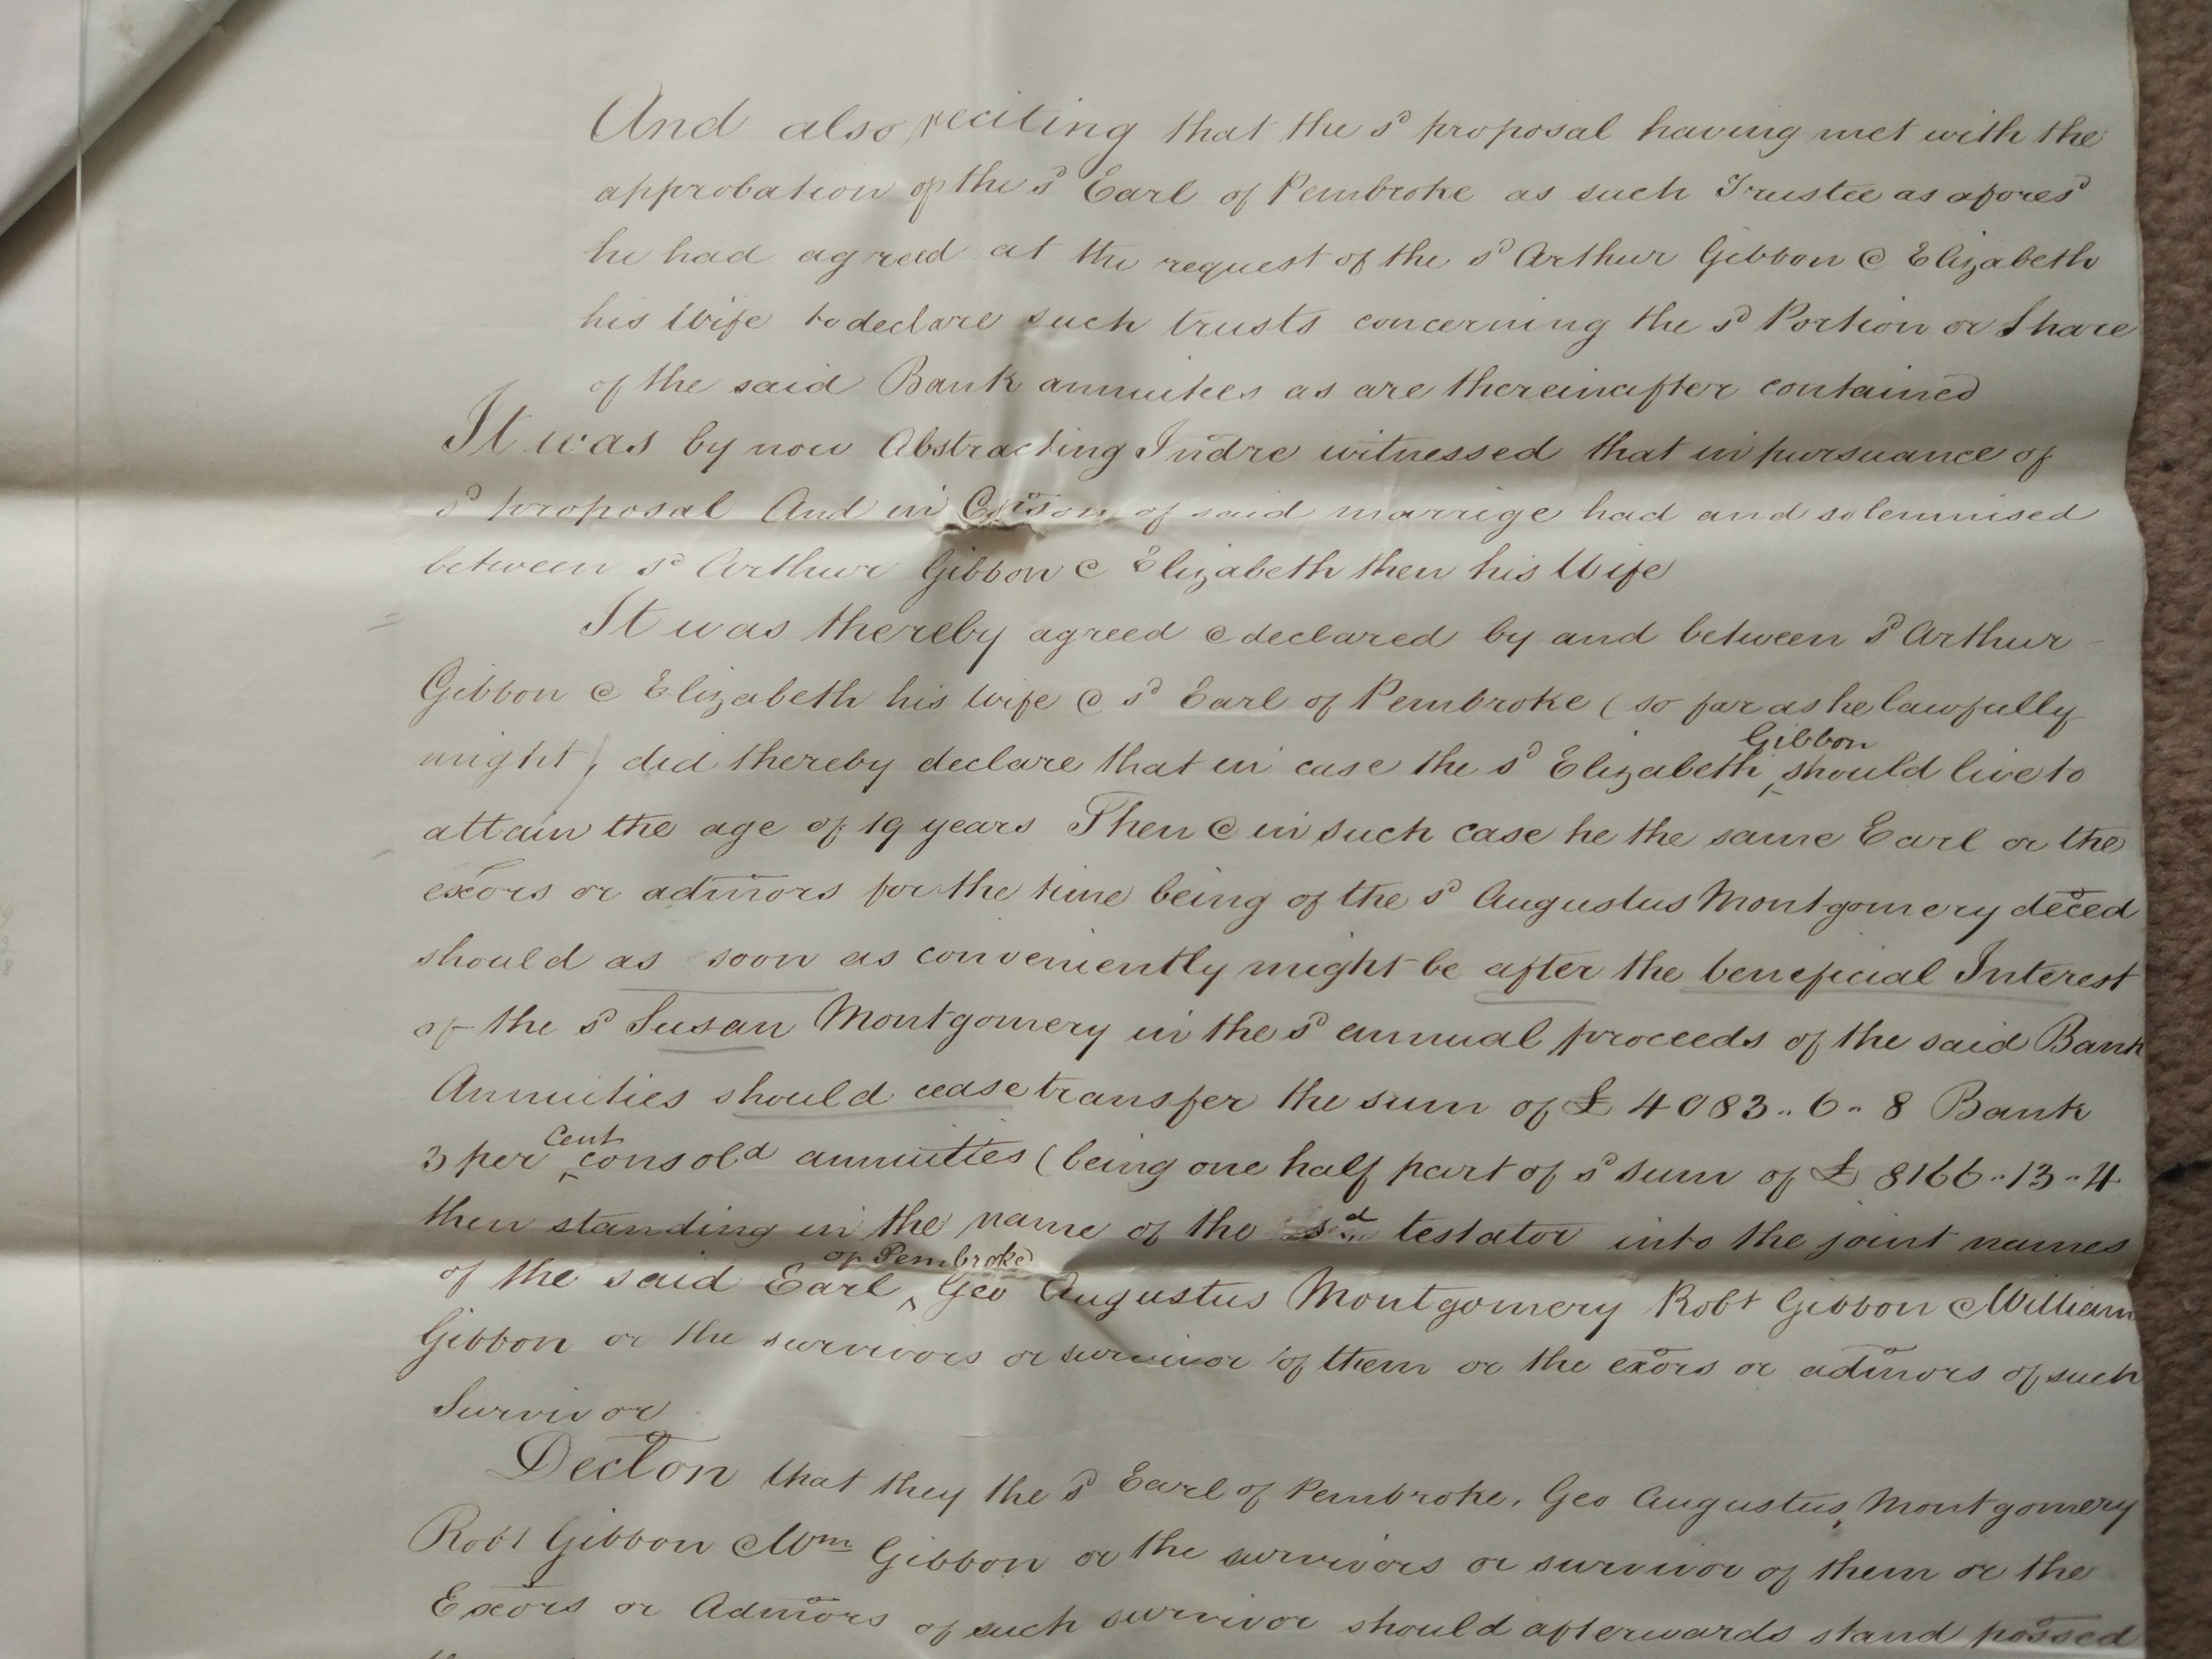 And also reciting that the sd proposal having met with the
approbation of the sd Earl of Pembroke as such Trustee as aforesd
he had agreed at the request of the sd Arthur Gibbon & Elizabeth
his Wife to declare such trusts concerning the sd Portion or Share
of the said Bank annuities as are thereinafter contained
It was by now Abstracting Indre witnessed that in pursuance of
sd proposal And in Cosison of said marrige had and solemnised
between sd Arthur Gibbon & Elizabeth then his Wife
It was thereby agreed & declared by and between sd Arthur
Gibbon & Elizabeth his Wife & sd Earl of Pembroke (so far as he lawfully
might) did thereby declare that in case the sd Elizabeth Gibbon should live to
attain the age of 19 years Then & in such case he the same Earl or the
exors or admors for the time being of the sd Augustus Montgomery deced
should as soon as conveniently might be after the beneficial Interest
of the sd Susan Montgomery in the sd annual proceeds of the said Bank
Annuities should cease transfer the sum of £4083..6..8 Bank
3 per cent consold annuities (being one half part of sd sum of £8166..13..4
then standing in the name of the sd testator into the joint names
of the said Earl of Pembroke Geo Augustus Montgomery Robt Gibbon & William
Gibbon or the survivors or survivor of them or the exors or admors of such
Survivor
Declon that they the sd Earl of Pembroke, Geo Augustus Montgomery
Robt Gibbon & Wm Gibbon or the survivors or survivor of them or the
Exors or Admors of such survivor should afterwards stand possed